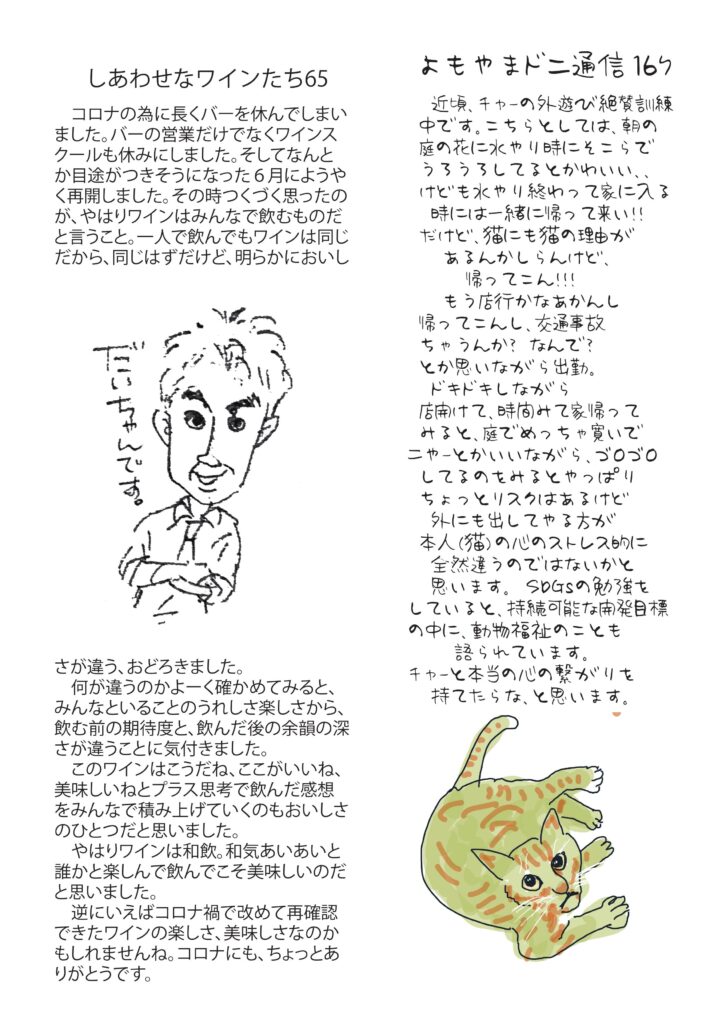 しあわせなワインたち65
　コロナの為に長くバーを休んでしまい
ました。バーの営業だけでなくワインス
クールも休みにしました。そしてなんと
か目途がつきそうになった６月にようや
く再開しました。その時つくづく思ったの
が、やはりワインはみんなで飲むものだ
と言うこと。一人で飲んでもワインは同じ
だから、同じはずだけど、明らかにおいし
だいちゃんです。
さが違う、おどろきました。
　何が違うのかよーく確かめてみると、
みんなといることのうれしさ楽しさから、
飲む前の期待度と、飲んだ後の余韻の深
さが違うことに気付きました。
　このワインはこうだね、ここがいいね、
美味しいねとプラス思考で飲んだ感想
をみんなで積み上げていくのもおいしさ
のひとつだと思いました。
　やはりワインは和飲。和気あいあいと
誰かと楽しんで飲んでこそ美味しいのだ
と思いました。
　逆にいえばコロナ禍で改めて再確認
できたワインの楽しさ、美味しさなのか
もしれませんね。コロナにも、ちょっとあ
りがとうです。
よもやまドニ通信
近頃、チャーの外遊び絶賛訓練
中です。こちらとしては、朝の
庭の花に水やり時にそこらで
うろうろしてるとかわいい、、
けども水やり終わって家に入る
時には一緒に帰って来い!!
だけど、猫にも猫の理由が
あるんかしらんけど、
帰ってこん!!!
もう店行かなあかんし
帰ってこんし、交通事故
ちゃうんか? なんで?
とか思いながら出勤。
ドキドキしながら
店開けて、時間みて家帰って
みると、庭でめっちゃ寛いで
ニャーとかいいながら、ゴロゴロ
してるのをみるとやっぱり
ちょっとリスクはあるけど
外にも出してやる方が
本人(猫)の心のストレス的に
全然違うのではないかと
思います。 SDGsの勉強を
していると、持続可能な開発目標
の中に、動物福祉のことも
語られています。
チャーと本当の心の繋がりを
持てたらな、と思います。